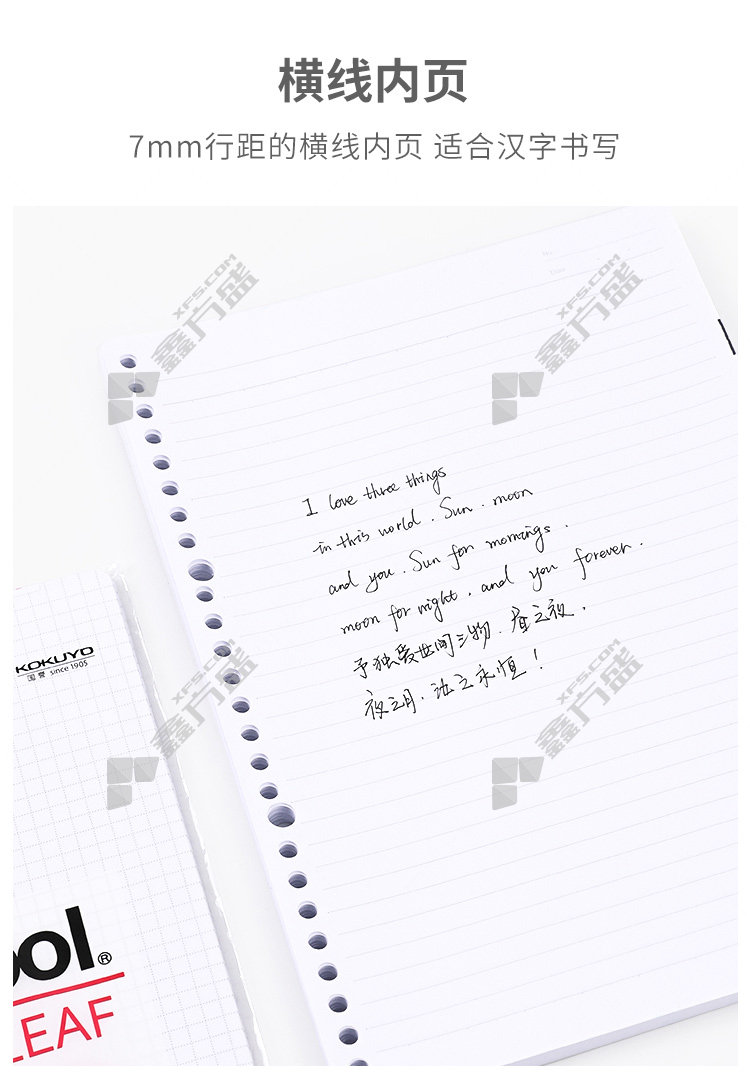 横线内页
7mm行距的横线内页 适合汉字书写
No.
Date
XFS.COM
鑫方盛
XFS.COM
鑫方盛
I love three things
in this world . Sun . moon
and you . Sun for mornings .
moon for night . and you forever .
予独爱世间三物 . 昼之 .
夜之月 . 汝之永恒！
KOKUYO
国誉 since 1905
XFS.COM
鑫方盛
XFS.COM
鑫方盛
ool®
LEAF